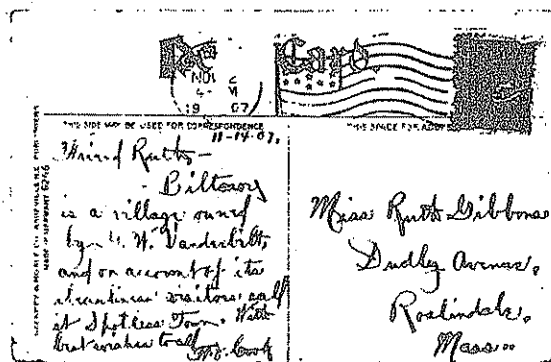 Post Card
NOV
19 07
THIS SIDE MAY BE USED FOR CORRESPONDENCE
THIS SPACE FOR
11-14-07.
Friend Ruth -
Biltmore
is a village owned
by G. W. Vanderbilt,
and on account of its
cleanliness visitors call
it Spotless Town. With
best wishes to all
Cook
Miss Ruth Gibbons
Dudley Avenue,
Roslindale,
Mass.